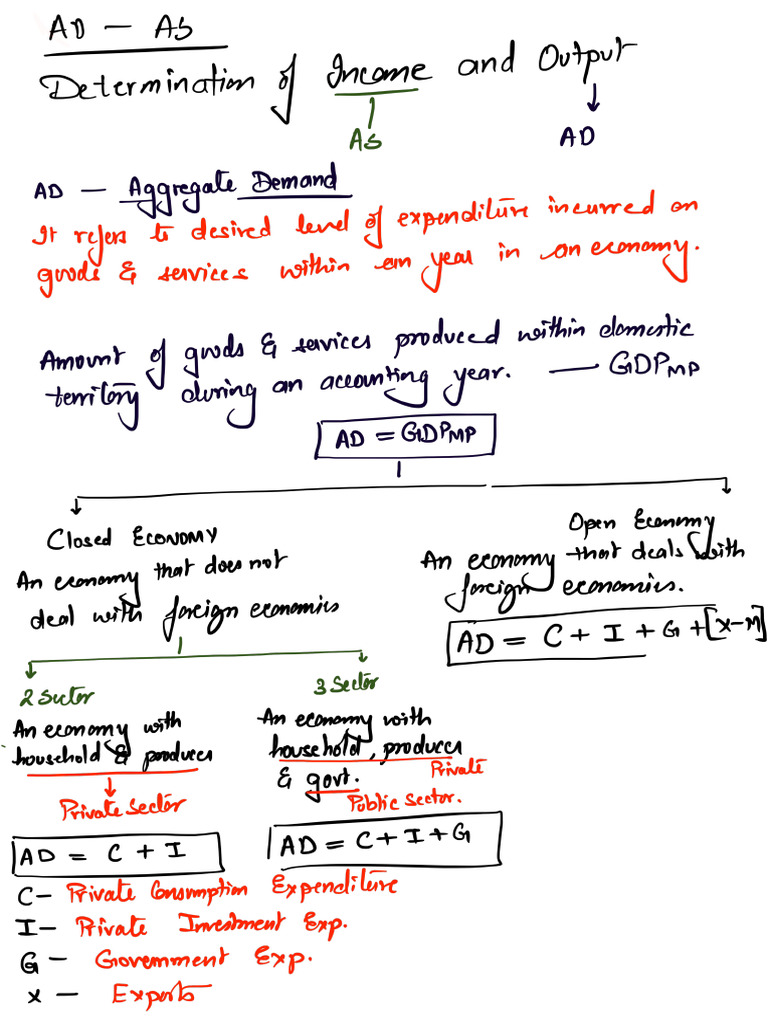 AD — AS
Determination of Income and Output
AS
AD
AD — Aggregate Demand
It refers to desired level of expenditure incurred on
goods & services within an year in an economy.
Amount of goods & services produced within domestic
territory during an accounting year. — GDPMP
AD = GDPMP
Closed ECONOMY
An economy that does not
deal with foreign economies
Open Economy
An economy that deals with
foreign economies.
AD = C + I + G + [X-M]
2 Sector
An economy with
household & produces
Private Sector
AD = C + I
3 Sector
An economy with
household, produces
Private
& govt.
Public Sector.
AD = C + I + G
C — Private Consumption Expenditure
I — Private Investment Exp.
G — Government Exp.
X — Exports